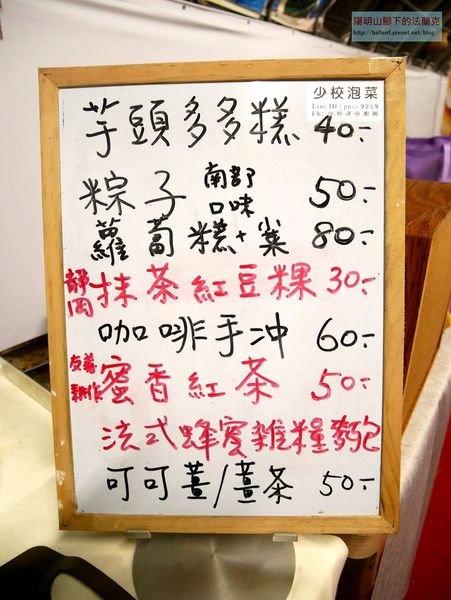 陽明山腳下的法蘭克
http://ballenf.pixnet.net/blog
少校泡菜
Line ID : pass9259
芋頭多多糕 40.-
粽子 南部口味 50.-
蘿蔔糕+粽 80.-
靜岡 抹茶紅豆粿 30.-
咖啡手沖 60.-
友善耕作 蜜香紅茶 50.-
法式蜂蜜雜糧麵包
可可薑/薑茶 50.-